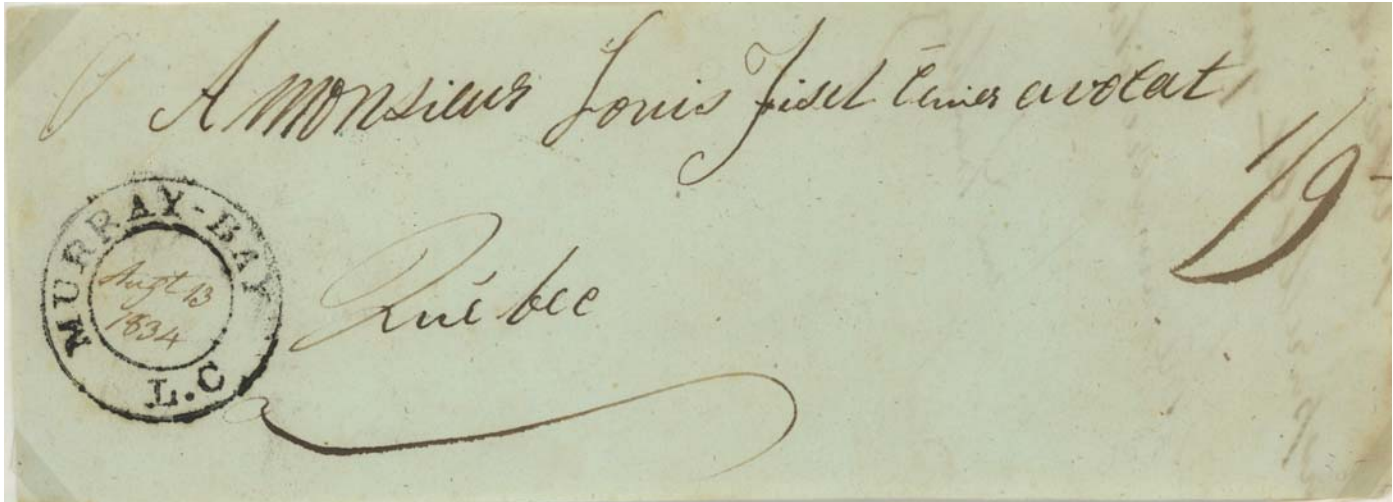 A monsieur Louis Fiset avocat
1/9
MURRAY-BAY
Augt 13
1834
L.C
Québec